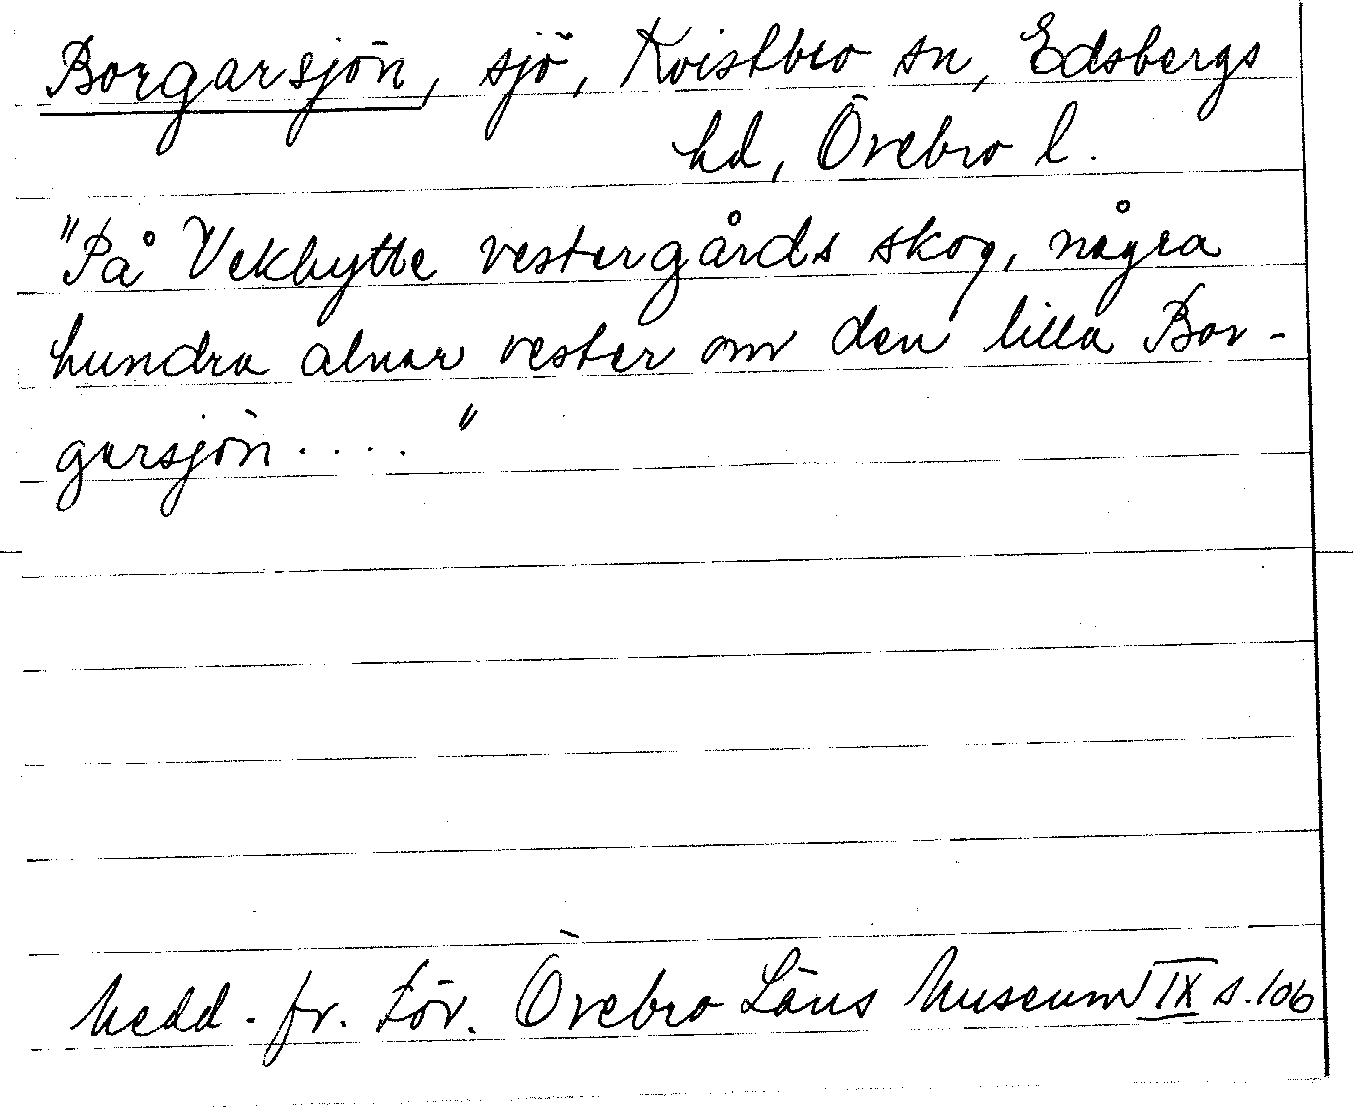 Borgarsjön, sjö, Kvistbro sn, Edsbergs
hd, Örebro l.
"På Vekhytte vestergårds skog, några
hundra alnar vester om den lilla Bor-
garsjön . . . . "
Medd. fr. För. Örebro Läns Museum IX s. 106